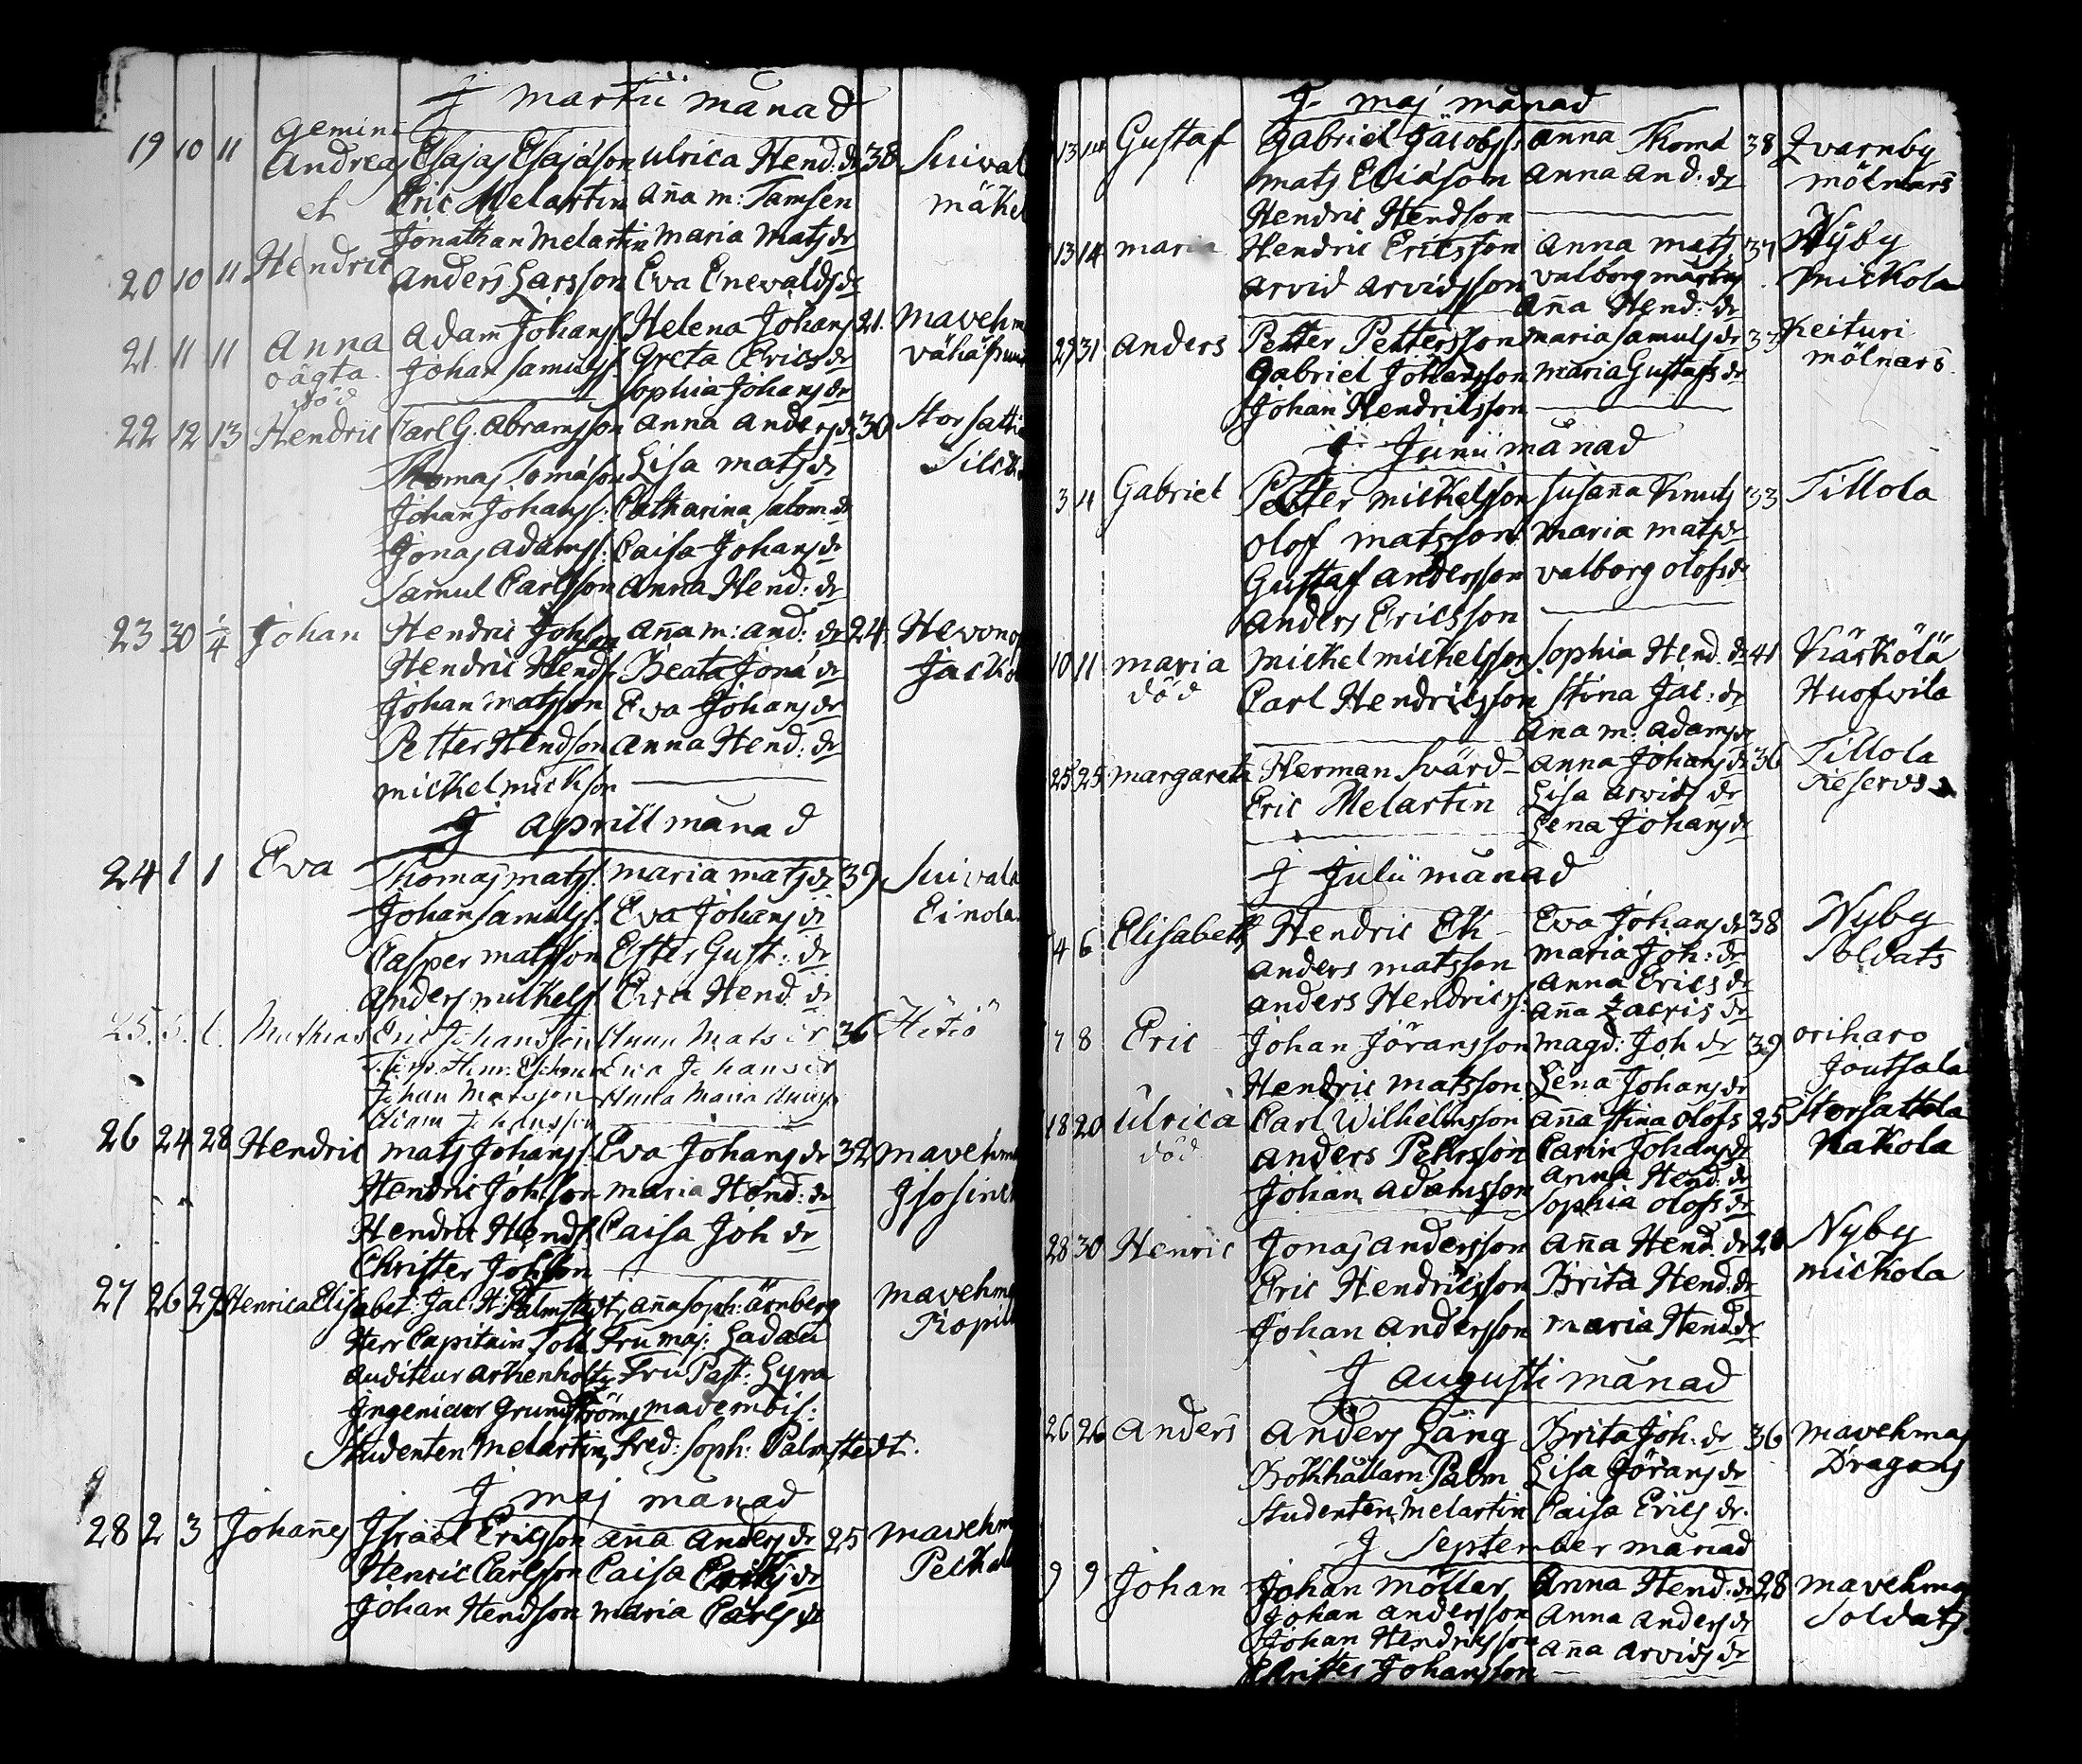 J martii månad
gemini
19 10 11 Andreas Esajas Esajason ulrica Hend: dr 38 Suival
et Eric Melartin aña m: Tamsen mäkel
Jonathan Melartin maria mats dr
20 10 11 Hendric anders Larsson Eva Enewalds dr
21 11 11 Anna adam Johans Helena Johans 21. mavehm
oägta Johan Samulss. Greta Erics dr vähä
död Sophia Johans dr
22 12 13 Hendric Carl G. Abramsson anna anders dr 30 Storsatt
Thomas Tomáson Lisa mats dr Silt
Johan Johanss: Catharina Salom: dr
Jonas adamss: Caisa Johans dr
Samul Carlsson Anna Hend: dr
23 30 1/4 Johan Hendric Johson aña m: and: dr 24. Hevono
Hendric Hends. Beata Jona dr Jacko
Johan matsson Eva Johans dr
Petter Hendson anna Hend: dr
michel mickson
J aprill månad
24 1 1 Eva Thomas matss. maria mats dr 39 Suivala
Johan Samulss. Eva Johans dr Einola
Casper matsson Ester Gust: dr
anders mickelss. Eva Hend: dr
25. 5. 6. Mathias Eric Johansson Anna Mats dr 36 Hetiö
Hinr. Eschner Eva Johans dr
Johan Matsson Anna Maria
Adam Johansson
26 24 28 Hendric mats Johanss: Eva Johans dr 32 mavehm
Hendric Johsson maria Hend: dr
Hendric Hends. Caisa Joh dr
Christer Johsson
27 26 29 Henrica Elisabet: Jac: H: Palmstedt, aña Soph: ärnberg mavehm
Herr Capitain Toll Fru maj: Ladau
auditeur arkenholtz Fru Past: Lyra
Ingenieur Grundström, madembis:
Studenten Melartin, Fred: Soph: Palmstedt.
J maj månad
28 2 3 Johañes Israel Ericsson aña anders dr 25 mavehm
Henric Carlsson Caisa dr
Johan Hendson maria Carls dr
J maj månad
13 14 Gustaf Gabriel Jacobss: anna Thoma 38 Qvarnby
mats Eliáson anna and: dr mölnars
Hendric Hendson
13 14 maria Hendric Ericsson anna mats 37 Nyby
arvid arvidsson valborg mårtes mickola
aña Hend: dr
29 31 anders Petter Pettersson maria Samuls dr 35 Keituri
Gabriel Johansson maria Gustafs dr mölnars
Johan Hendricsson
J Junii månad
3 4 Gabriel Petter mickelsson Susaña Knuts 33 Tillola
olof matsson maria mats dr
Gustaf andersson valborg olofs dr
anders Ericsson
10 11 maria mickel mickelsson Sophia Hend. dr 41 Kärkölä
död Carl Hendricsson Stina Jac: dr Huofvila
aña m: adams dr
25 25 margareta Herman Svärd anna Johans dr 36 Tillola
Eric Melartin Lisa arvids dr Reservs
Lena Johans dr
J Julii månad
4 6 Elisabeth Hendric Ek Eva Johans dr 38 Nyby
anders matsson maria Joh: dr Soldats
anders Hendricss. anna Erics dr
aña Zacris dr
7 8 Eric Johan Jöransson magd: Joh dr 39 oriharo
Hendric matsson Lena Johans dr Joutsala
18 20 Ulrica Carl Wilhelmsson aña Stina olofs 25 Storsattola
död anders Petersson Carin Johans dr Kakola
Johan adamsson anna Hend: dr
Sophia olofs dr
28 30 Henric Jonas andersson aña Hend. dr 28 Nyby
Eric Hendricsson Brita Hend: dr mickola
Johan andersson maria Hend: dr
J augusti månad
26 26 anders anders Lång Brita Joh: dr 36 mavehmas
Bokhållarn Palm Lisa Jörans dr Dragons
Studenten Melartin Caisa Erics dr.
J September månad
9 9 Johan Johan möller, Anna Hend: dr 28 mavehma
Johan andersson anna anders dr Soldats.
Johan Hendricsson aña arvids dr
Christer Johansson